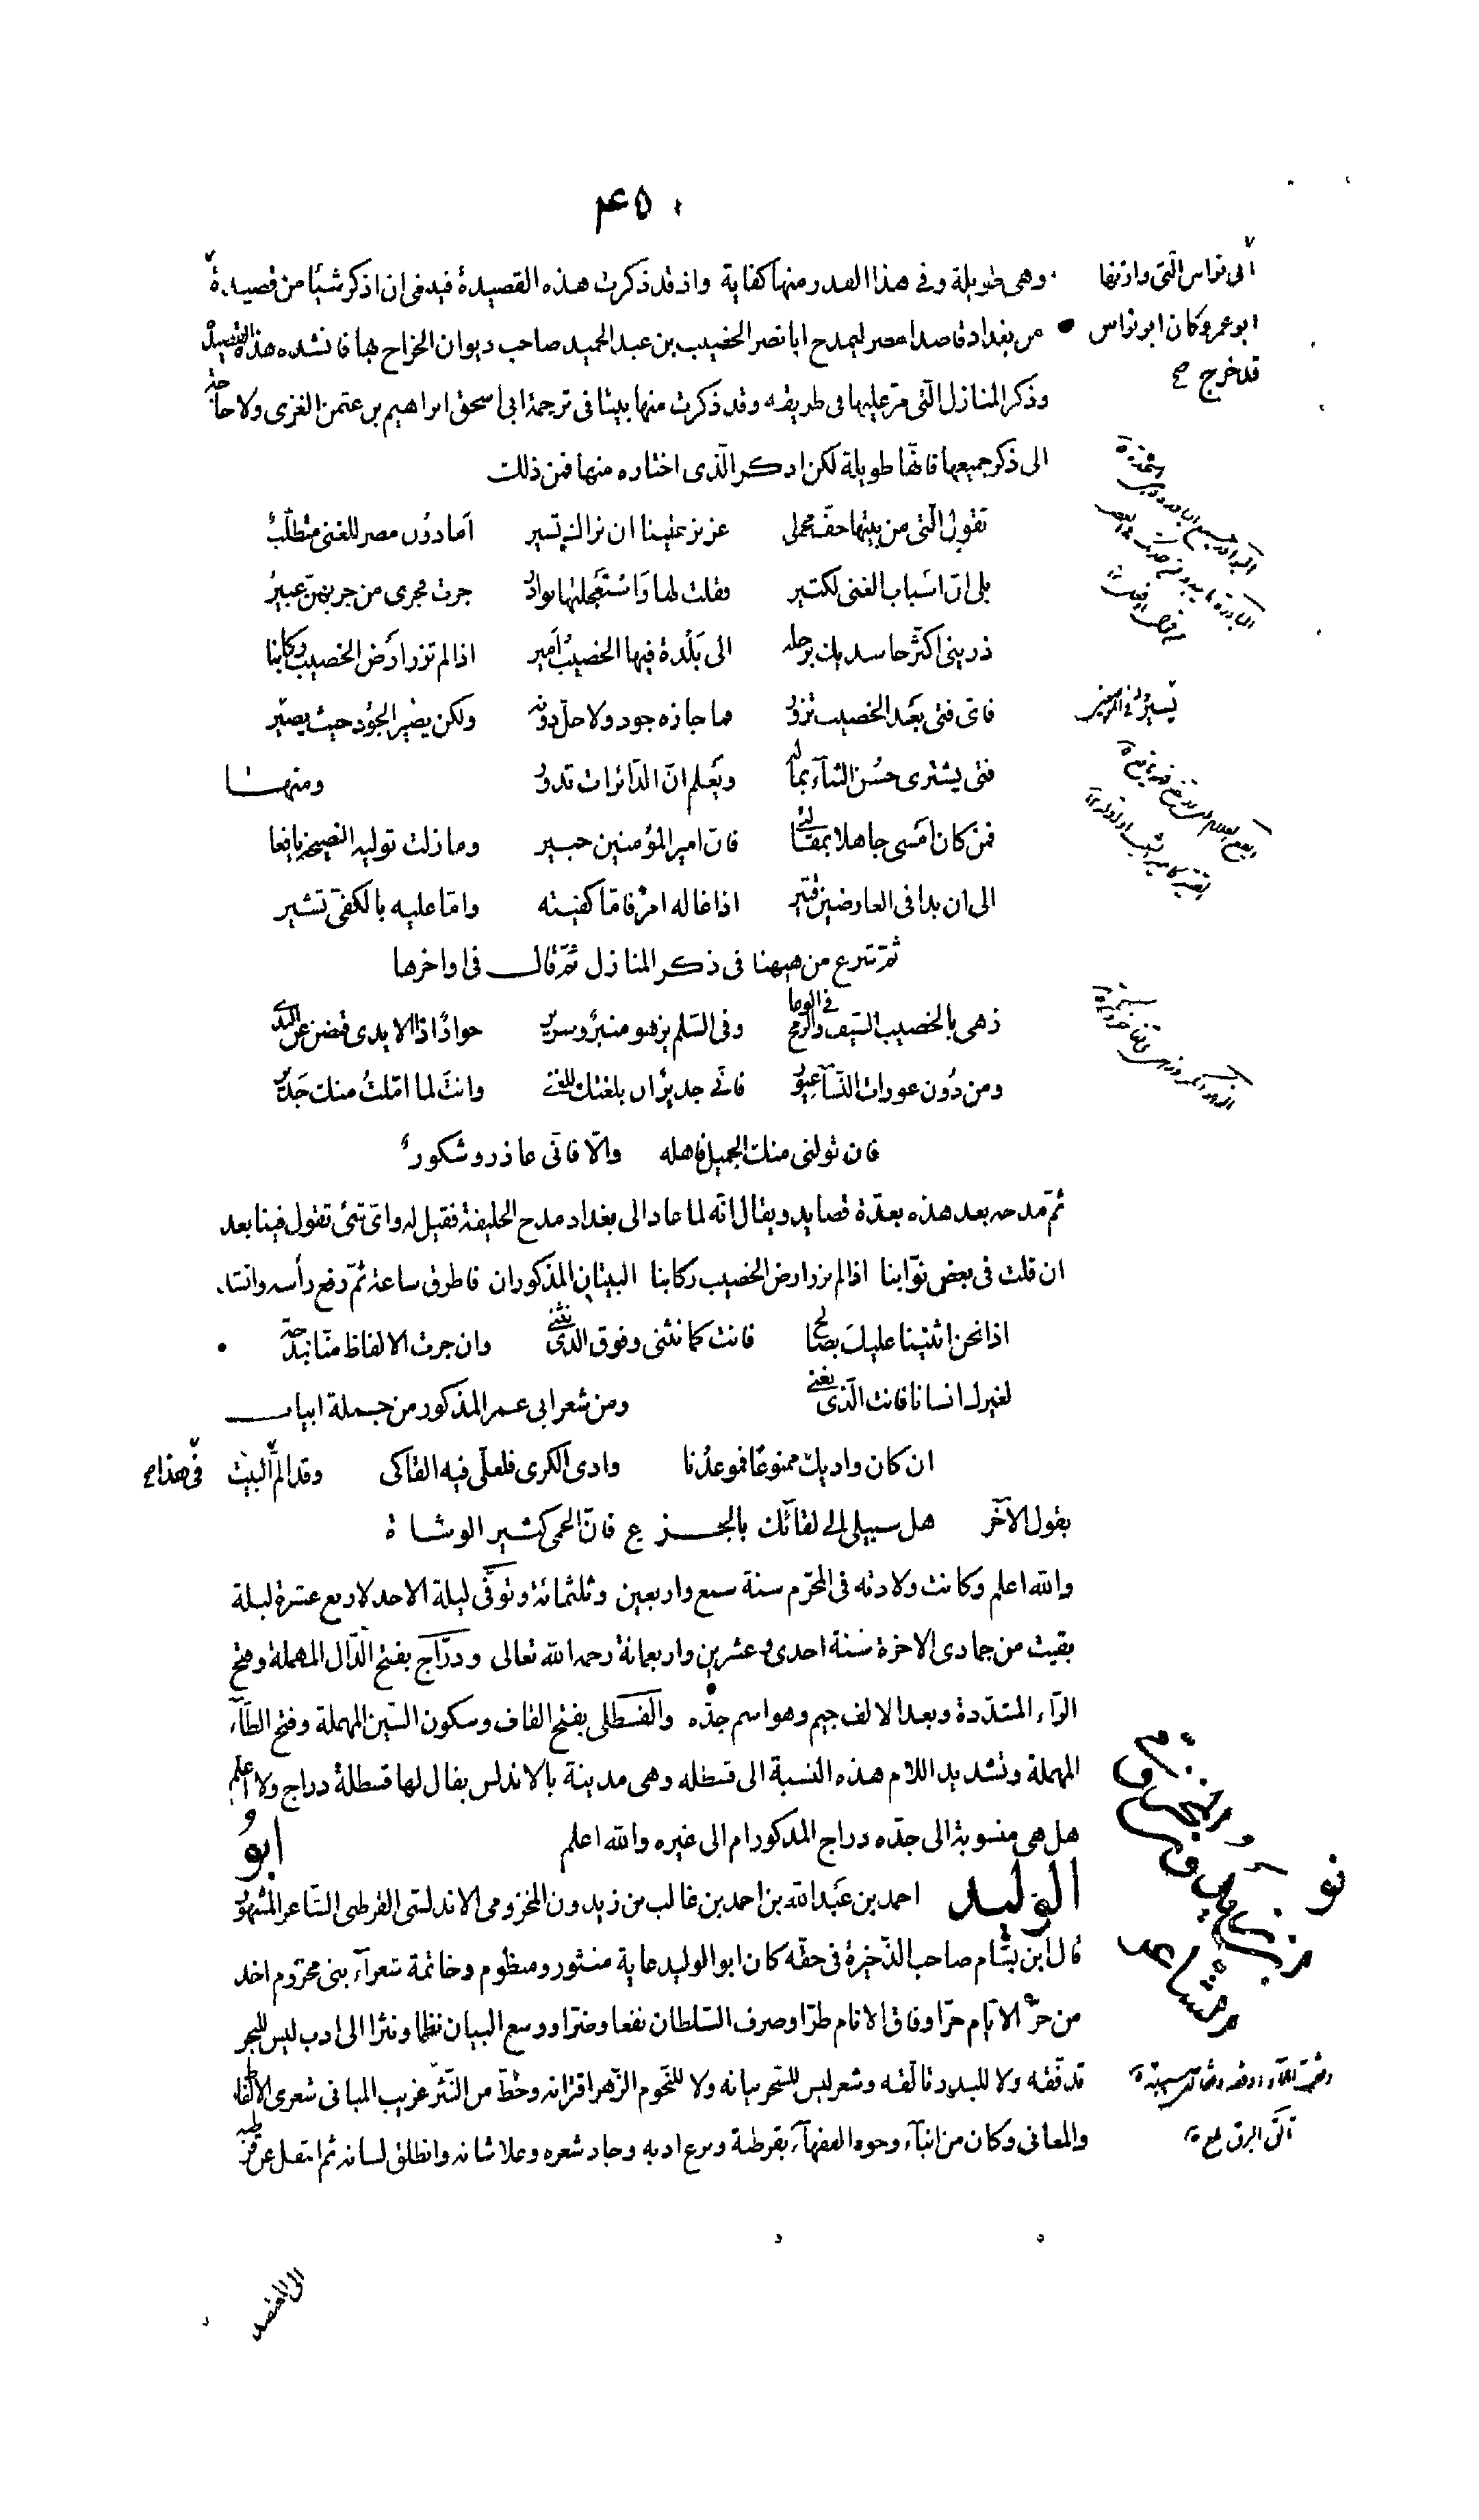 ٤٥٠
وهى طويلة وفى هذا القدر منها كفاية واذ قد ذكرت هذه القصيدة فينبغى ان اذكر شيئا من قصيدة
ابى نواس التى وازنها
ابو عمر وكان ابو نواس
قد خرج صح
من بغداد قاصدا مصر ليمدح ابا نصر الخصيب بن عبد الحميد صاحب ديوان الخراج بها فانشده هذه القصيدة
وذكر المنازل التى مر عليها فى طريقه وقد ذكرت منها بيتا فى ترجمة ابى اسحق ابراهيم بن عثمن الغزى ولا حاجة
الى ذكر جميعها فانها طويلة لكن اذكر الذى اختاره منها فمن ذلك
تقول التى من بيتها خف محملى عزيز علينا ان نراك تسير اما دون مصر للغنى متطلب
بلى ان اسباب الغنى لكثير فقلت لها واستعجلتها بوادر جرت فجرى من جريهن عبير
ذرينى اكثر حاسديك برحلة الى بلدة فيها الخصيب امير اذا لم تزر ارض الخصيب ركابنا
فاى فتى بعد الخصيب تزور فما جازه جود ولا حل دونه ولكن يصير الجود حيث يصير
يسير فى
فتى يشترى حسن الثنآء بماله ويعلم ان الدائرات تدور ومنها
فمن كان امسى جاهلا بمقالتى فان امير المؤمنين خبير وما زلت توليه النصيحة يافعا
الى ان بدا فى العارضين قتير اذا غاله امر فاما كفيته واما عليه بالكفى تشير
ثم شرع من هيهنا فى ذكر المنازل ثم قال فى اواخرها
زهى بالخصيب السيف والرمح فى الوغا وفى السلم يزهو منبر وسرير جواد اذا الايدى قبضن عن الندى
ومن دون عورات النسآء غيور فانى جدير ان بلغتك للغنى وانت لما املت منك جدير
فان تولنى منك الجميل فاهله والا فانى عاذر وشكور
ثم مدحه بعد هذه بعدة قصايد ويقال انه لما عاد الى بغداد مدح الخليفة فقيل له واى شئ تقول فينا بعد
ان قلت فى بعض نوابنا اذا لم تزر ارض الخصيب ركابنا البيتان المذكوران فاطرق ساعة ثم رفع رأسه وانشد
اذا نحن اثنينا عليك بصالح فانت كما نثنى وفوق الذى نثنى وان جرت الالفاظ منا بمدحة
لغيرك انسانا فانت الذى نعنى ومن شعر ابى عمر المذكور من جملة ابيات
ان كان واديك ممنوعا فموعدنا وادى الكرى فلعلى فيه القاكى وقد الم فى هذا البيت
بقول الآخر هل سبيل الى لقائك بالجزع فان الحمى كثير الوشاة
والله اعلم وكانت ولادته فى المحرم سنة سبع واربعين وثلثمائة وتوفى ليلة الاحد لاربع عشرة ليلة
بقيت من جمادى الاخرة سنة احدى وعشرين واربعمائة رحمه الله تعالى ودراج بفتح الدال المهملة وفتح
الراء المشددة وبعد الالف جيم وهو اسم جده والقسطلى بفتح القاف وسكون السين المهملة وفتح الطآء
المهملة وتشديد اللام هذه النسبة الى قسطله وهى مدينة بالاندلس يقال لها قسطلة دراج ولا اعلم
هل هى منسوبة الى جده دراج المذكور ام الى غيره والله اعلم ابو
الوليد احمد بن عبد الله بن احمد بن غالب بن زيدون المخزومى الاندلسى القرطبى الشاعر المشهور
قال ابن بسام صاحب الذخيرة فى حقه كان ابو الوليد غاية منثور ومنظوم وخاتمة شعرآء بنى مخزوم اخذ
من حر الايام حرا وفاق الانام طرا وصرف السلطان نفعا وضرا ووسع البيان نظما ونثرا الى ادب ليس للبحر
تدفقه ولا للبدر تالقه وشعر ليس للسحر بيانه ولا للنجوم الزهر اقترانه وحظ من النثر غريب المبانى شعرى الالفاظ
والمعانى وكان من ابناء وجوه الفقهآء بقرطبة وبرع ادبه وجاد شعره وعلا شانه وانطلق لسانه ثم انتقل عن قرطبة
الى المعتضد